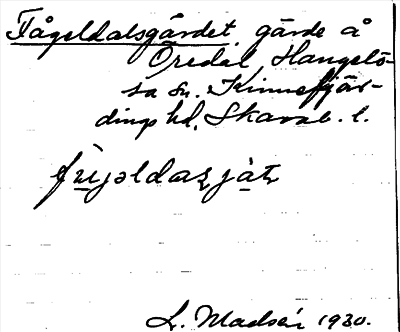 Fågeldalsgärdet gärde å
Öredal, Hangelö-
sa sn. Kinnefjär-
dings hd, Skarab. l.
L. Madsén 1930.